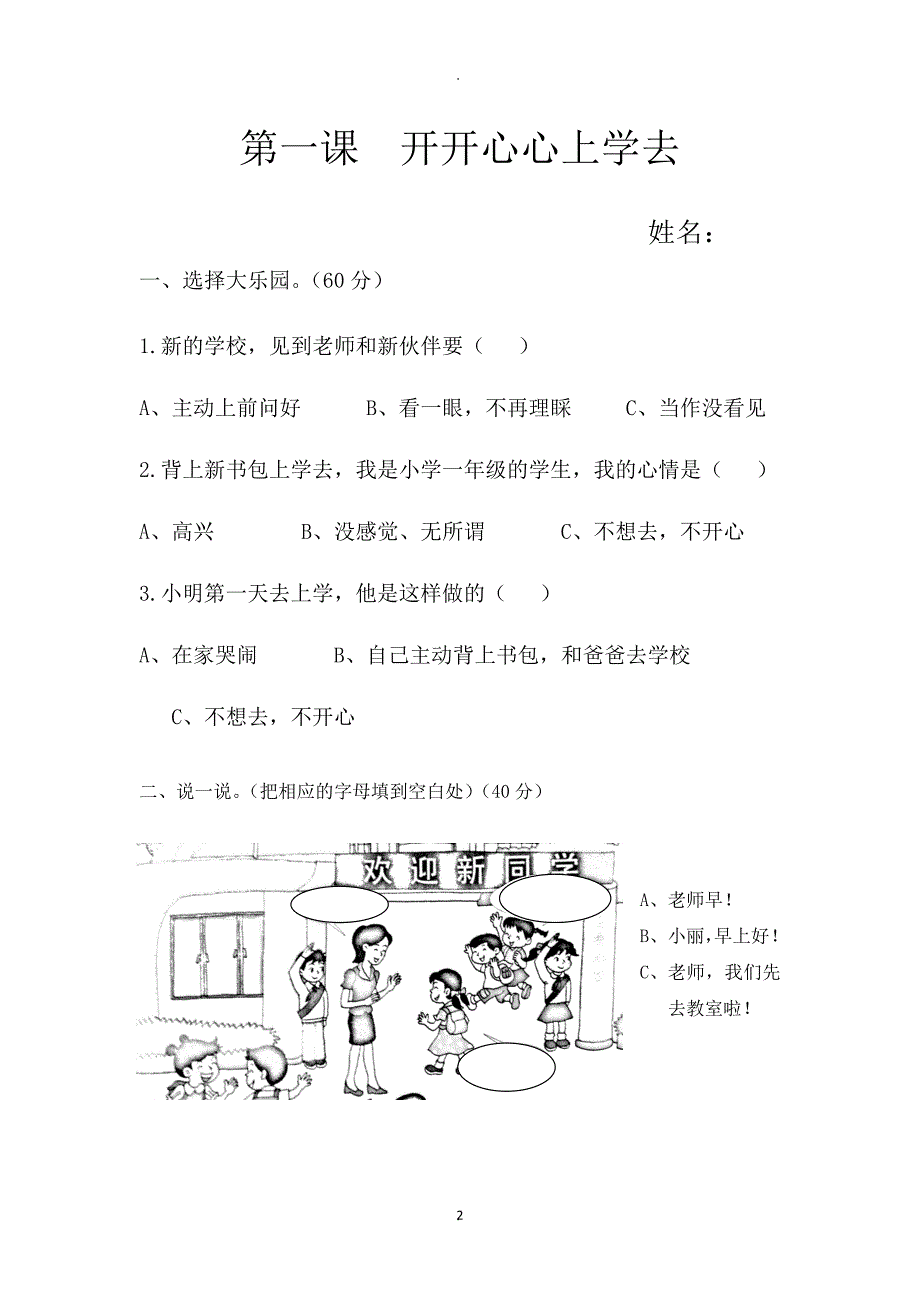 第一课 开开心心上学去
姓名：
一、选择大乐园。（60 分）
1.新的学校，见到老师和新伙伴要（ ）
A、主动上前问好 B、看一眼，不再理睬 C、当作没看见
2.背上新书包上学去，我是小学一年级的学生，我的心情是（ ）
A、高兴 B、没感觉、无所谓 C、不想去，不开心
3.小明第一天去上学，他是这样做的（ ）
A、在家哭闹 B、自己主动背上书包，和爸爸去学校
C、不想去，不开心
二、说一说。（把相应的字母填到空白处）（40 分）
欢迎新同学
A、老师早！
B、小丽，早上好！
C、老师，我们先
去教室啦！
2